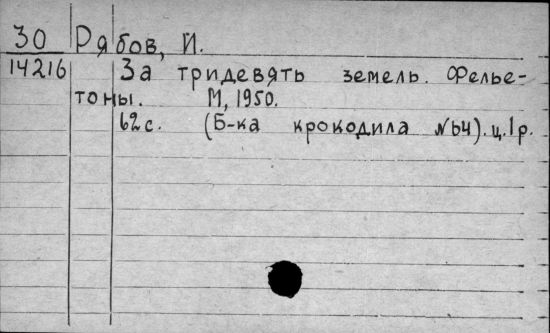 30 Рябов, И.
14216 За тридевять земель. Фелье-
тоны. М, 1950.
62с. (Б-ка крокодила №64). ц. 1 р.